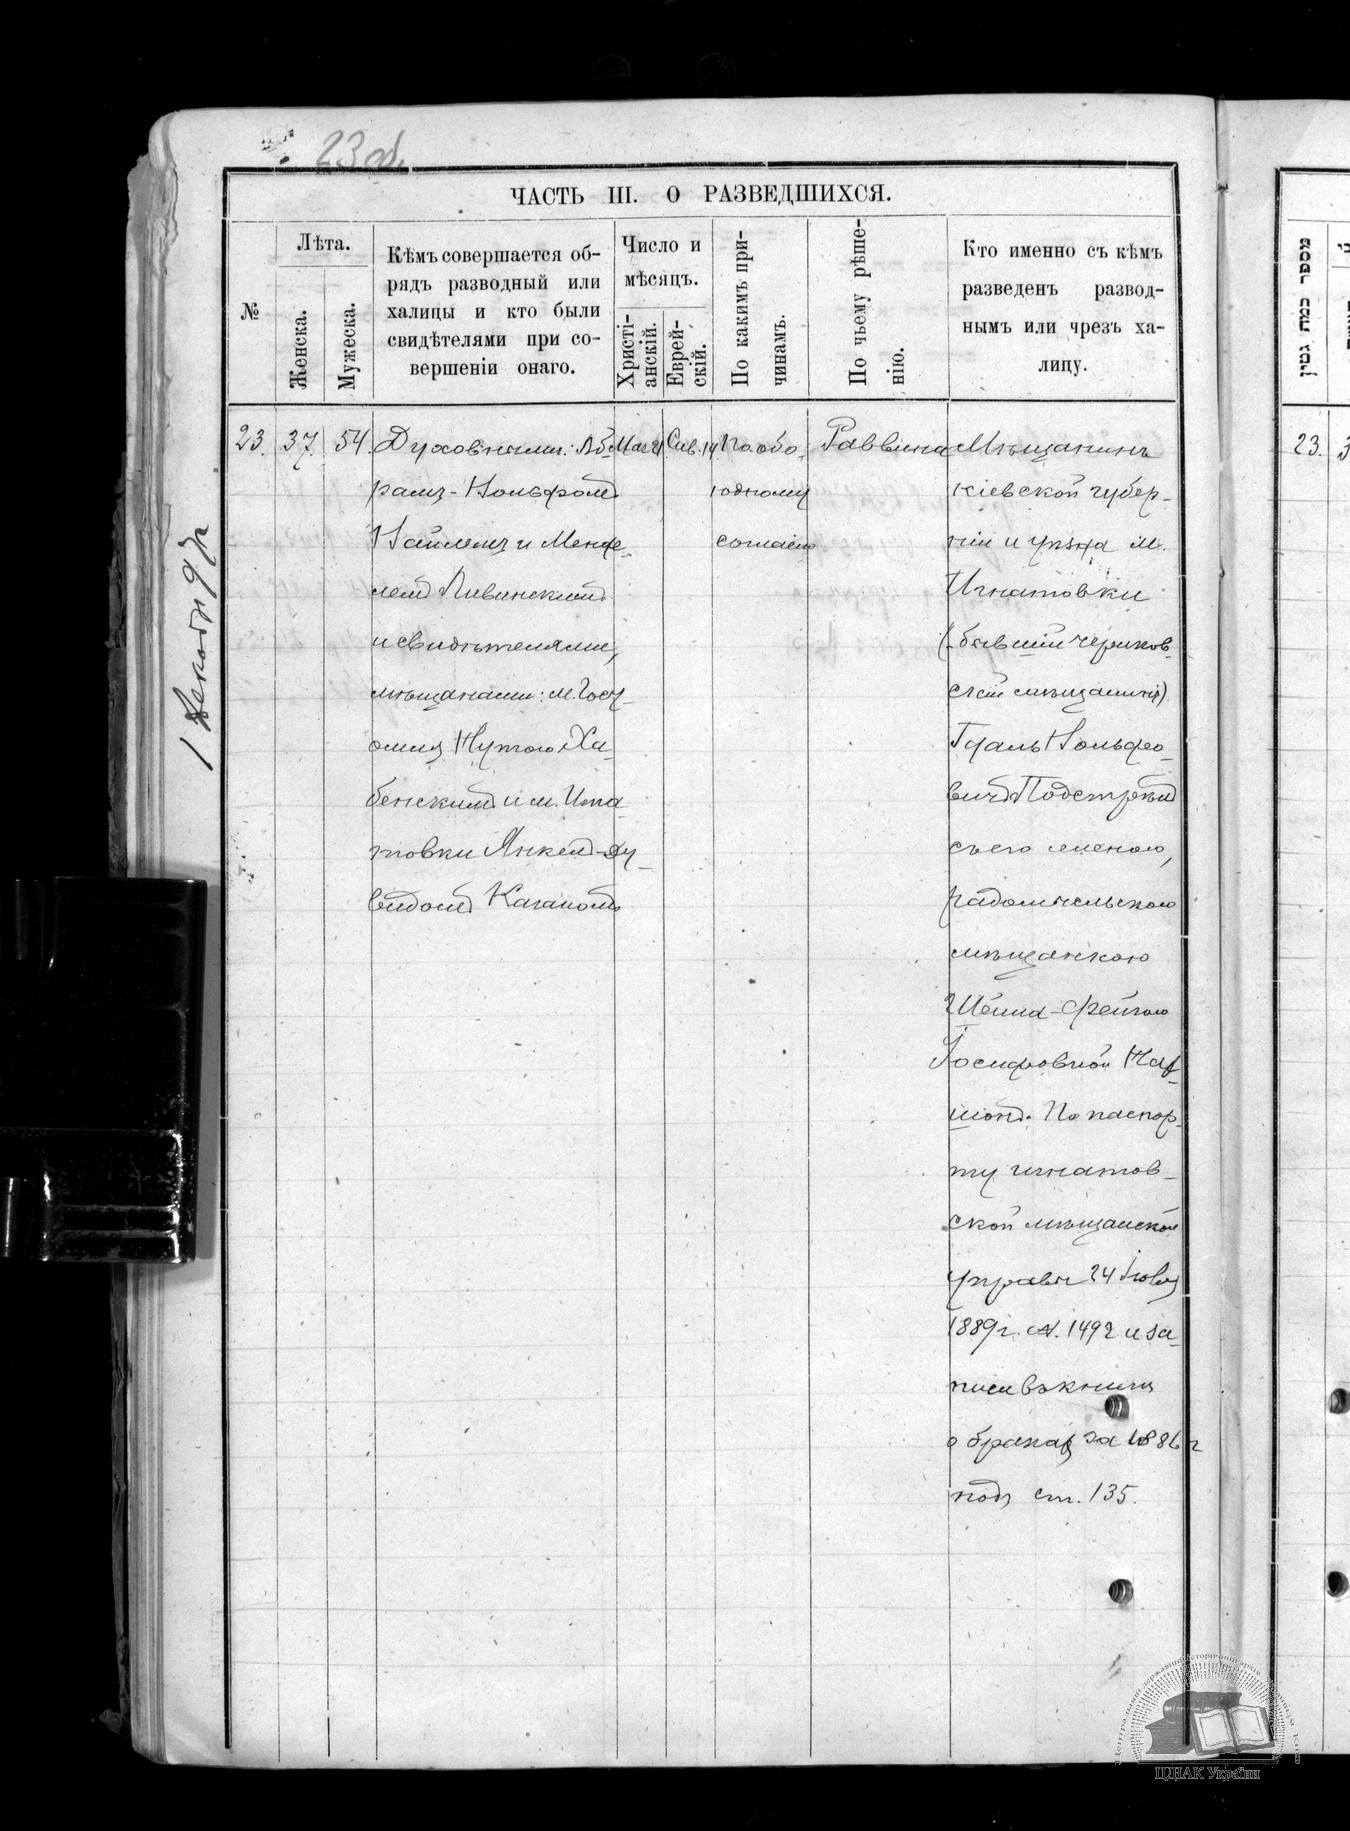 23 об.
ЧАСТЬ III. О РАЗВЕДШИХСЯ.
№
Лѣта.
Женска.
Мужеска.
Кѣмъ совершается об-
рядъ разводный или
халицы и кто были
свидѣтелями при со-
вершеніи онаго.
Число и
мѣсяцъ.
Христі-
анскій.
Еврей-
скій.
По какимъ при-
чинамъ.
По чьему рѣше-
нію.
Кто именно съ кѣмъ
разведенъ развод-
нымъ или чрезъ ха-
лицу.
23.
37.
54.
Духовными: Аб-
рамъ-Вольфомъ
и Менде-
лемъ Ливинскимъ
и свидѣтелями,
мѣщанами: м.
Нутою Ха-
бенскимъ и м. Игна-
товки Янкель-Ду-
видомъ Каганомъ
Сив. 14
По обо-
юдному
согласію
Раввина
Мѣщанинъ
кіевской губер-
ніи и уѣзда м.
Игнатовки
(бывшій
скій мѣщанинъ)
Вольфо-
вичъ
съ его женою,
радомысльскою
мѣщанкою
Шейна-Фейгою
Іосифовной
По паспор-
ту игнатов-
ской мѣщанской
управы 24 Іюля
1889 г. №. 1492 и за-
писи въ книгѣ
о бракахъ за 1886 г
подъ ст. 135.
מספר כמה גטין
23.
ЦДІАК України